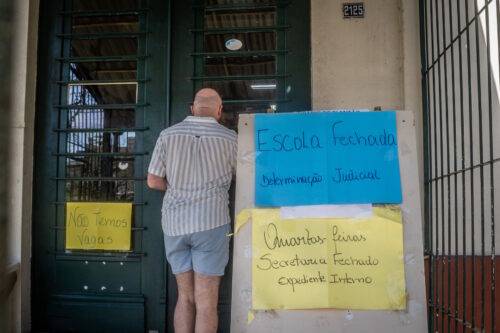 2125
Escola Fechada
Determinação Judicial
Não Temos
Vagas
Quartas feiras
Secretaria Fechado
Expediente Interno